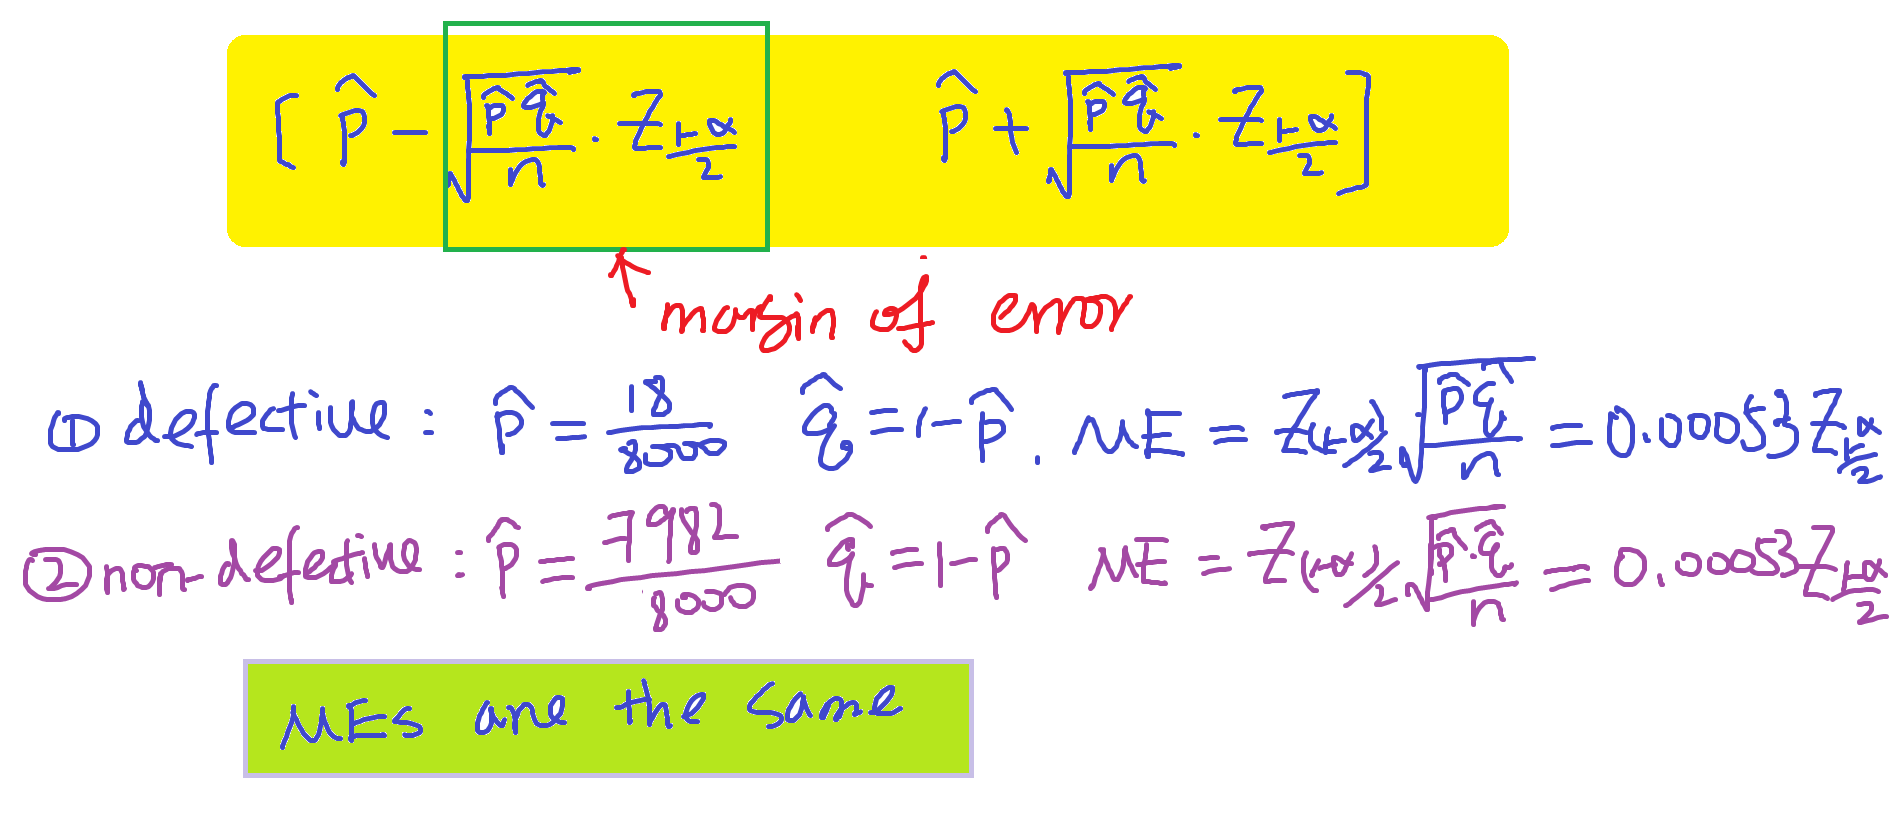 [ p̂ − √(p̂q̂/n) · Z_(1-α)/2    p̂ + √(p̂q̂/n) · Z_(1-α)/2 ]
margin of error
① defective : p̂ = 18/8000  q̂ = 1-p̂ . ME = Z_(1-α)/2 √(p̂q̂/n) = 0.00053 Z_(1-α)/2
② non-defective : p̂ = 7982/8000  q̂ = 1-p̂  ME = Z_(1-α)/2 √(p̂·q̂/n) = 0.00053 Z_(1-α)/2
MEs are the same